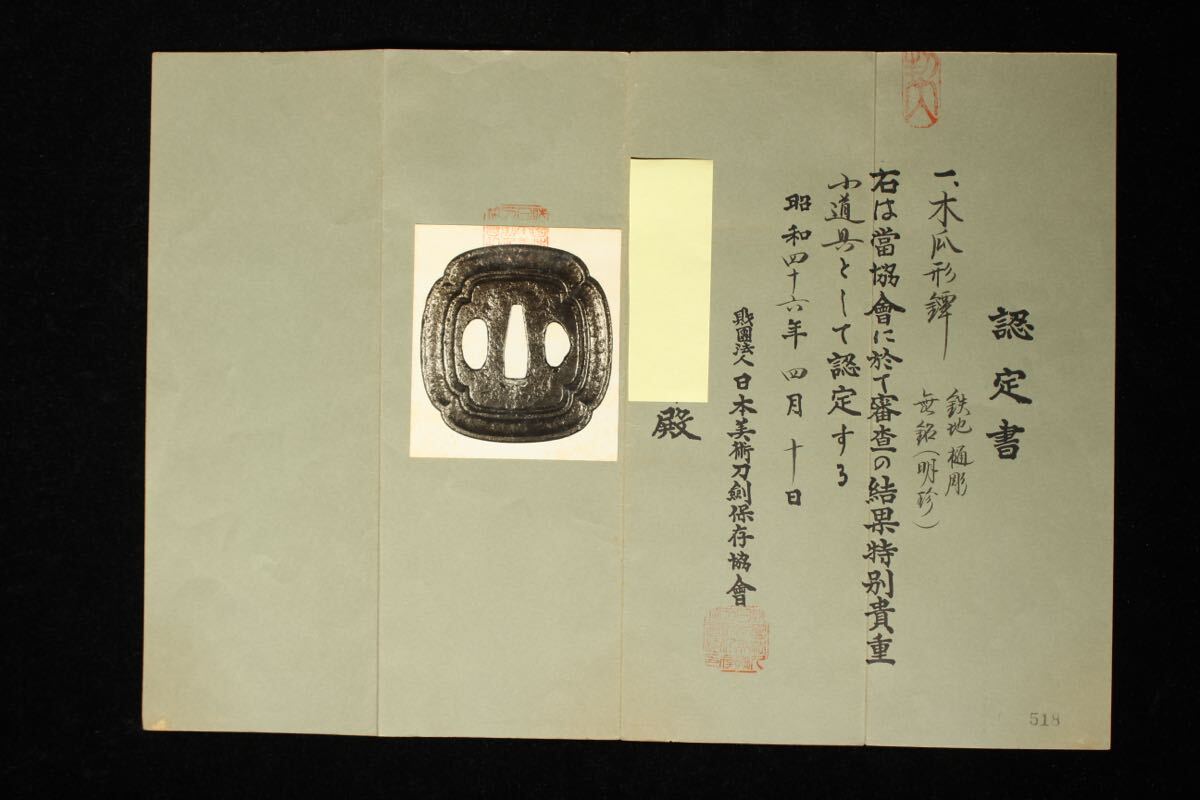 認定書
一、木瓜形鐔
鉄地 樋彫
無銘(明珍)
右は當協會に於て審査の結果特別貴重
小道具として認定する
昭和四十六年四月十日
財團法人日本美術刀劍保存協會
殿
518